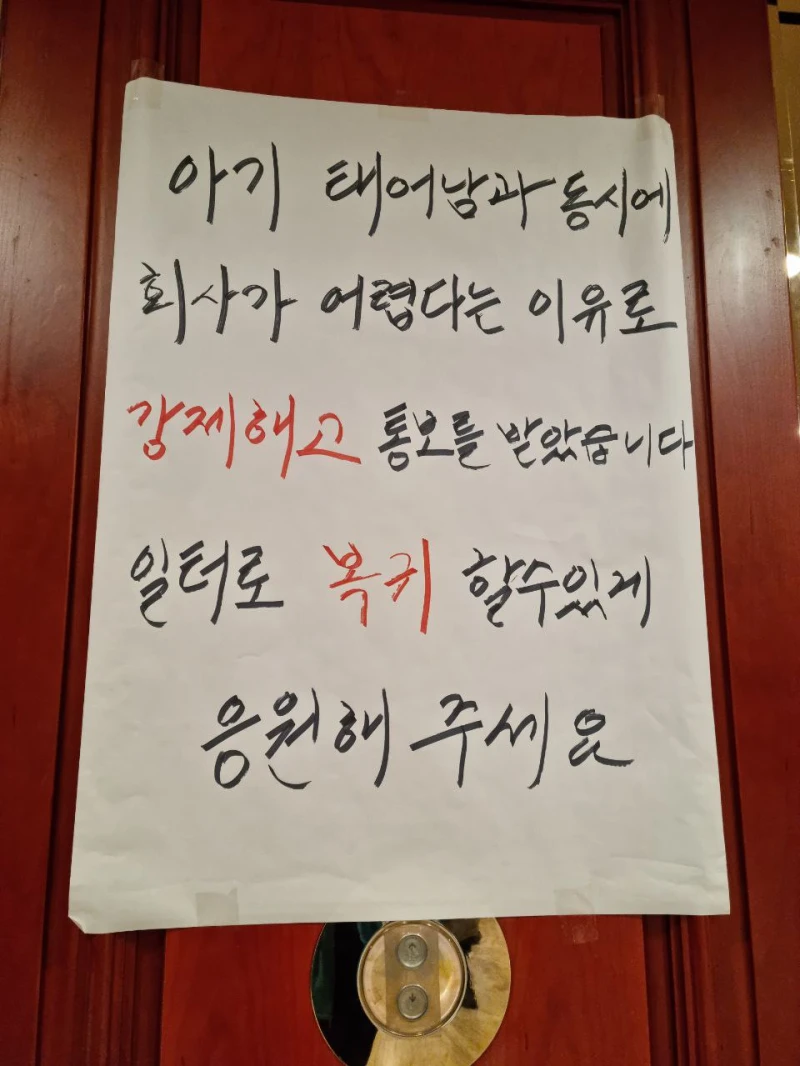 아기 태어남과 동시에
회사가 어렵다는 이유로
강제해고 통보를 받았습니다
일터로 복귀 할수있게
응원해 주세요